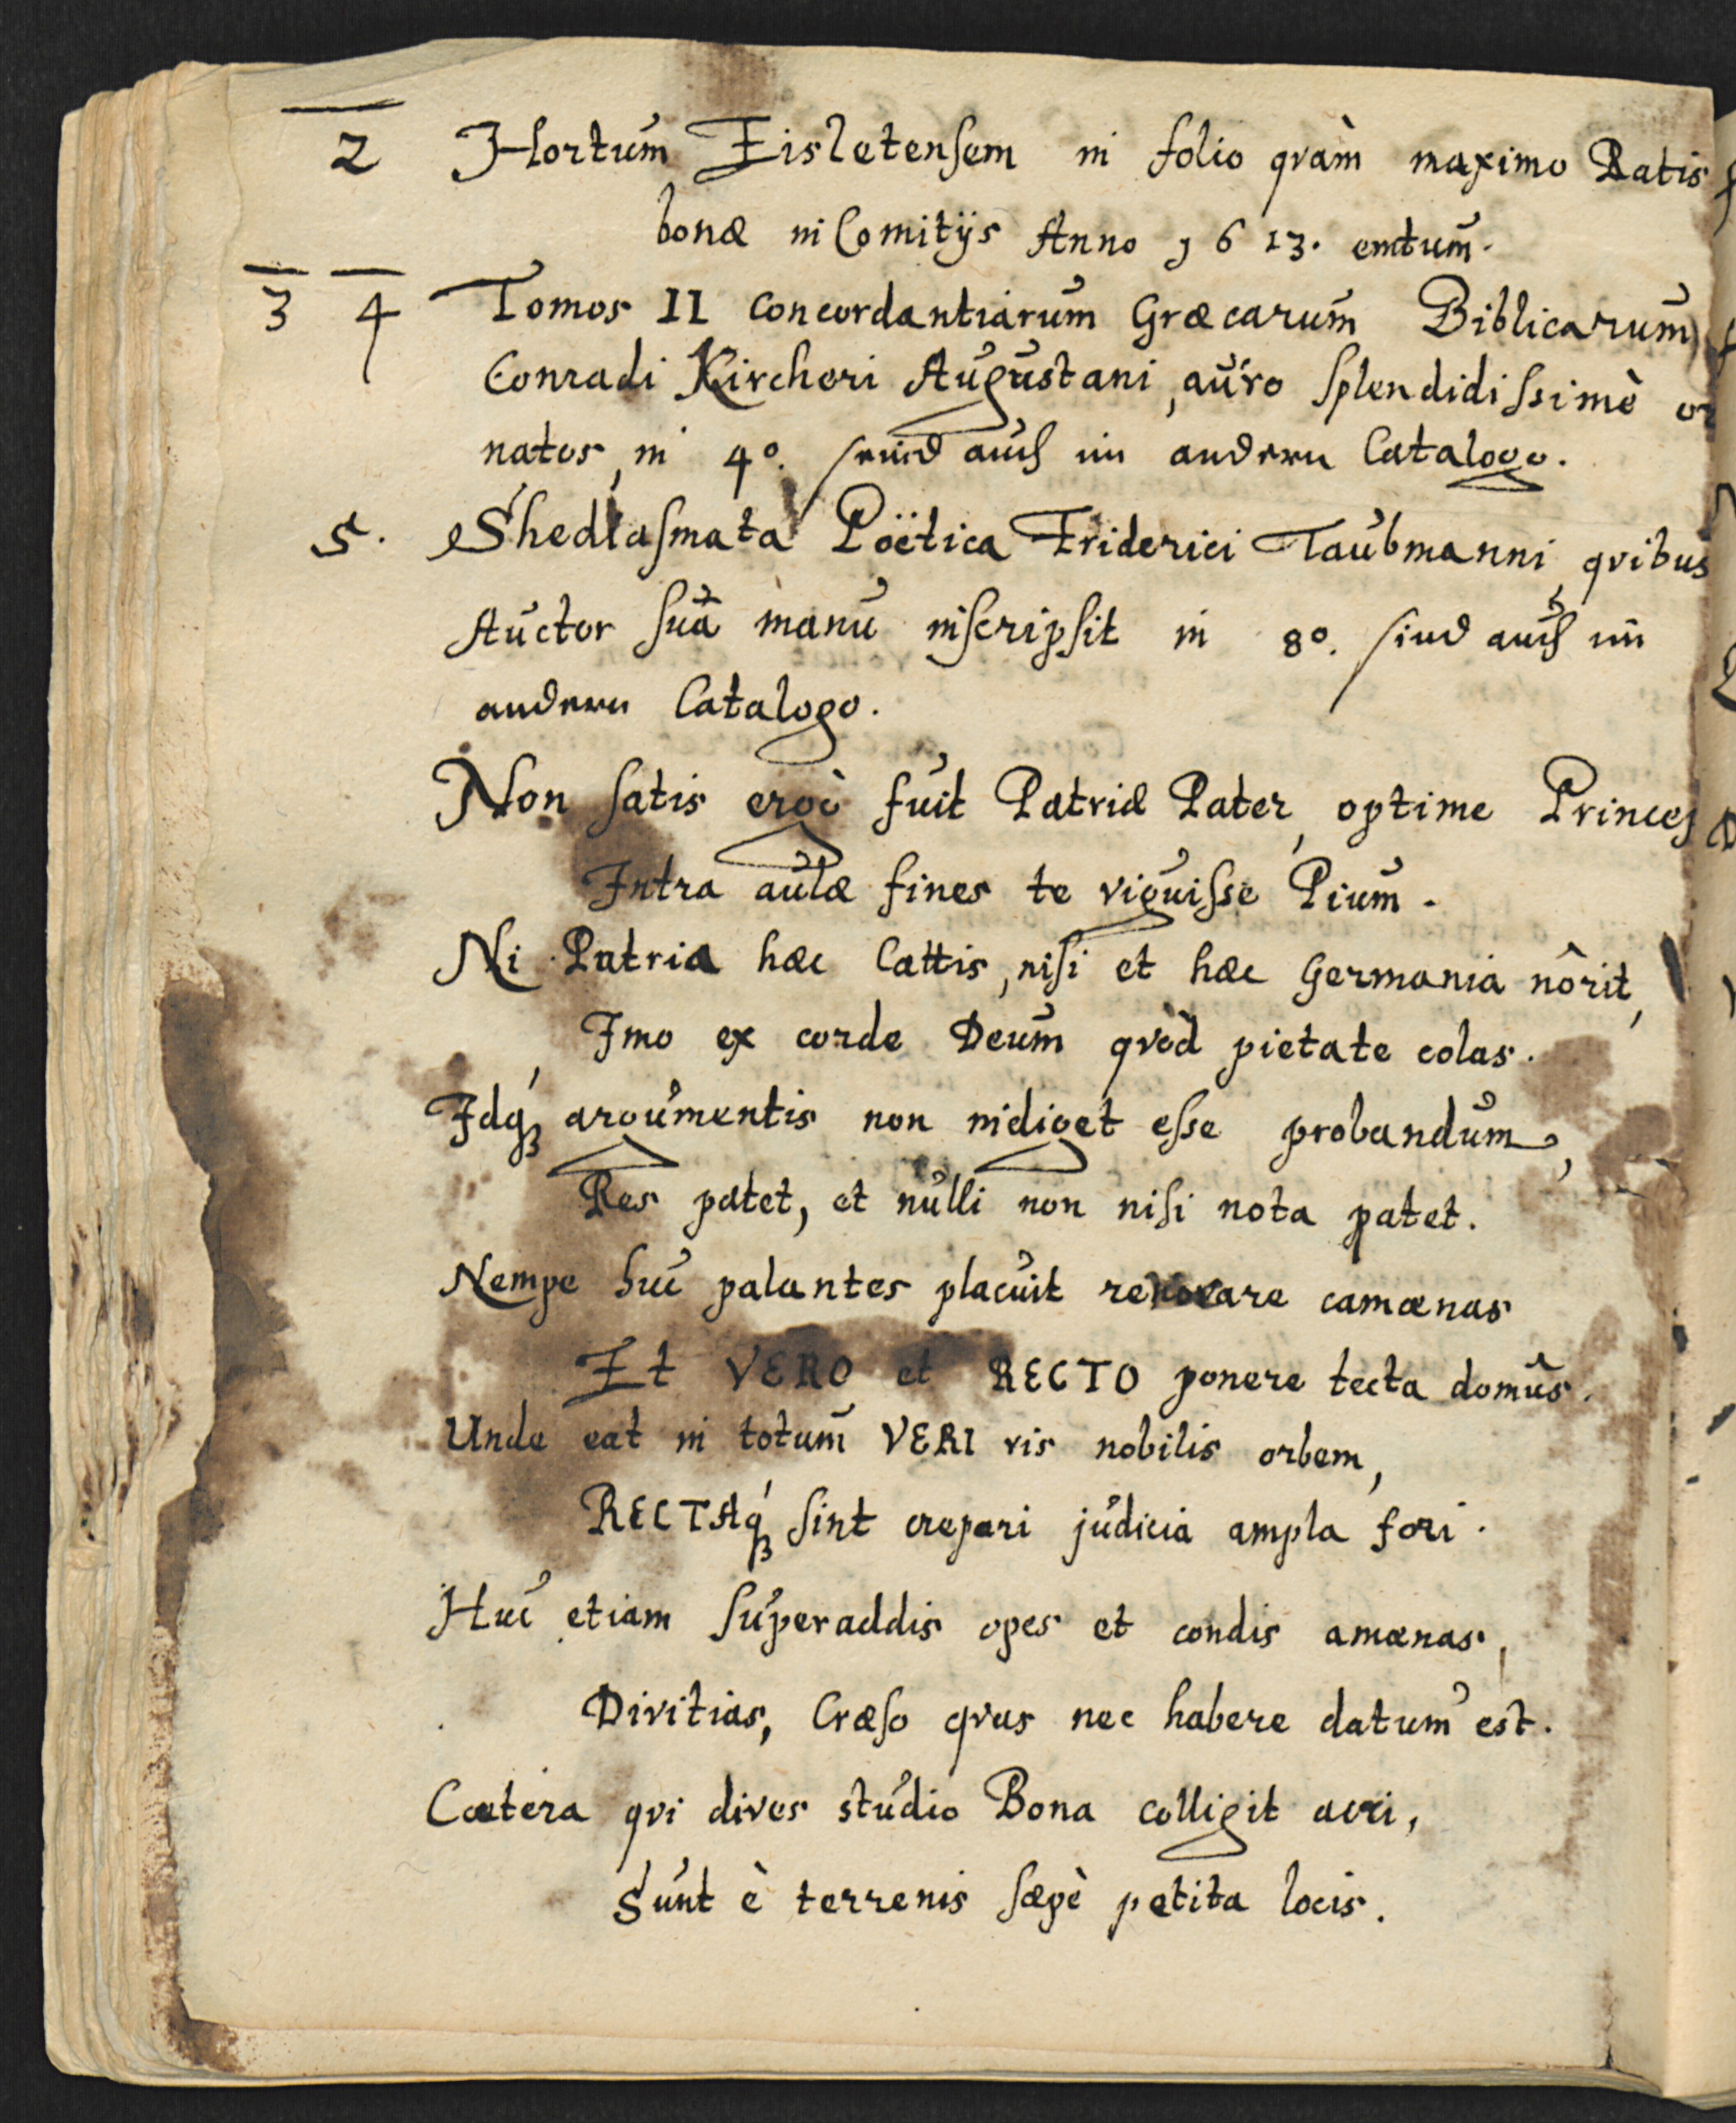 2 Hortum Eisletensem in folio qvàm maximo Ratis
bonæ in Comitijs Anno 1613. emtum.
3 4 Tomos II Concordantiarum Græcarum Biblicarum
Conradi Kircheri Augustani, auro splendidissimè or
natos, in 4º. seind auch im andern Catalogo.
5. Shediasmata Poëtica Friderici Taubmanni, qvibus
Auctor suâ manu inscripsit in 8º. sind auch im
andern Catalogo.
Non satis ergò fuit Patriæ Pater, optime Princeps
Intra aulæ fines te viguisse Pium.
Ni Patria hæc Cattis, nisi et hæc Germania nôrit,
Imo ex corde Deum qvòd pietate colas.
Idq́ꝫ argumentis non indiget esse probandum,
Res patet, et nulli non nisi nota patet.
Nempe huc palantes placuit camœnas
Et VERO et RECTO ponere tecta domus.
Unde eat in totum VERI vis nobilis orbem,
RECTAq́ꝫ sint crepari judicia ampla fori.
Huc etiam superaddis opes et condis amœnas,
Divitias, Cræso qvas nec habere datum est.
Cætera qvi dives studio Bona colligit acri,
Sunt è terrenis sæpè petita locis.